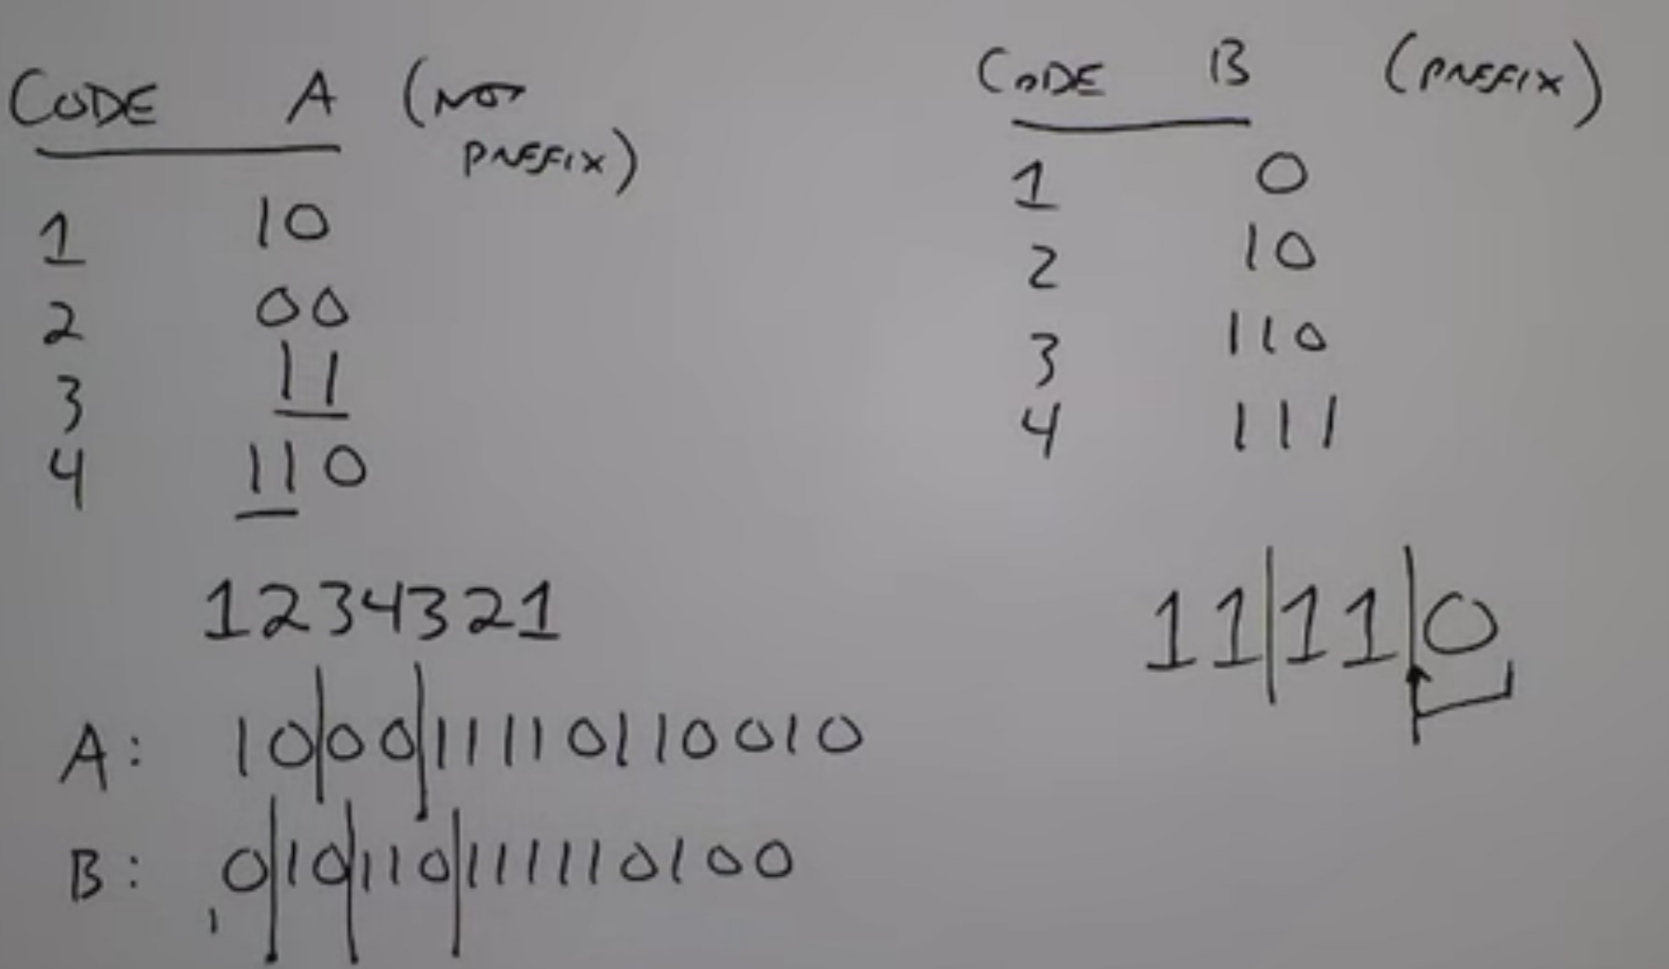 CODE A (NOT
PREFIX)
1 10
2 00
3 11
4 110
1234321
A: 10|00|11110110010
B: 0|10|110|111110100
CODE B (PREFIX)
1 0
2 10
3 110
4 111
11|11|0